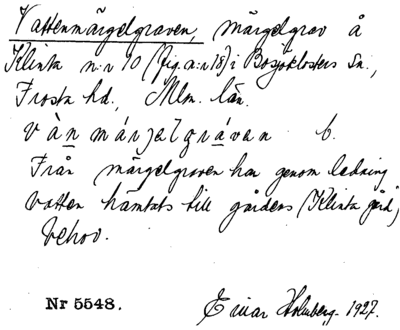 Vattenmärgelgraven, märgelgrav å
Klinta n:r 10 (fig. a:r 18) i Bosjöklosters Sn.,
Frosta hd., Mlm. län.
vàn márjelgrávan b.
Från märgelgraven har genom ledning
vatten hämtats till gårdens (Klinta gård)
behov.
Nr 5548.
Einar Holmberg. 1927.